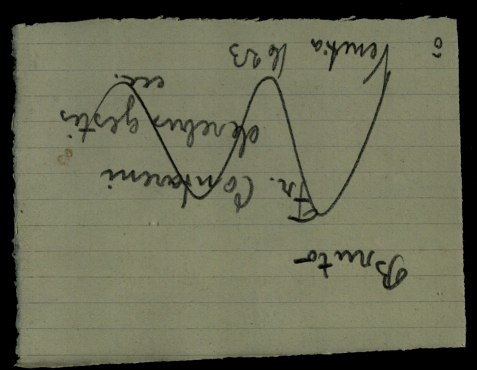 Bruto
Fr. Contareni
de rebus gestis
ecc.
Venetia 1623